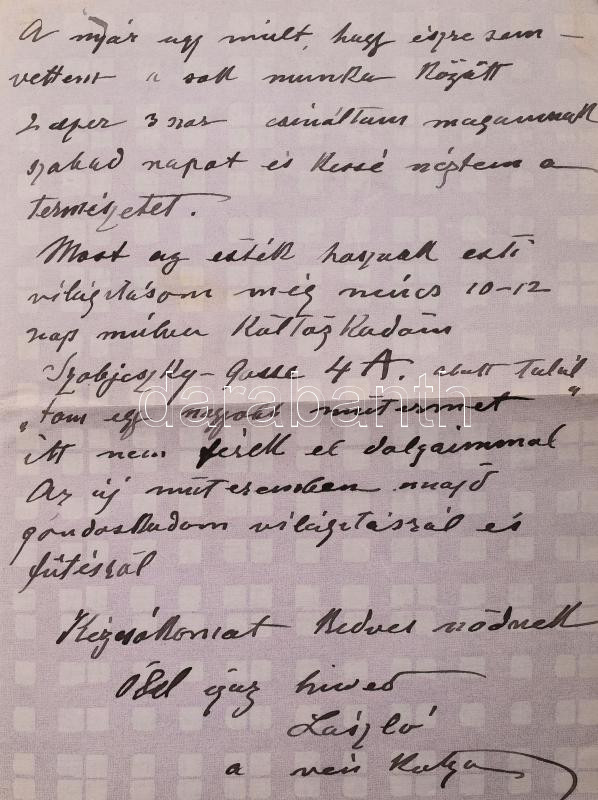 A nyár ugy múlt, hogy észre sem –
vettem a sok munka között
2 szer 3 szor csináltam magamnak
szabad napot és kissé néztem a
természetet.
Most az esték hosszuak esti
világitásom még nincs 10-12
nap múlva Költözködöm
Szobjeszky-Gasse 4A. alatt talál„
„tam egy nagyobb mütermet
itt nem férek el dolgaimmal
Az új müteremben majd
gondoskodom világitásról és
fűtésről
Kézcsókomat Kedves nődnek
Ölel igaz hived
László
a vén Kutya
darabanth